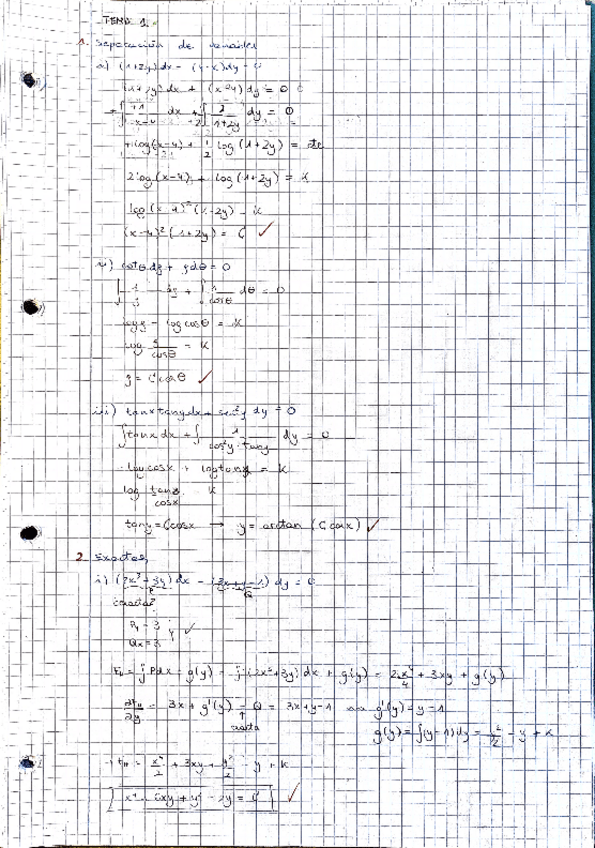 TEMA 1.
1. Separación de variables
i) (1+2y)dx - (4-x)dy = 0
(1+2y)dx + (x-4)dy = 0
dx + dy = 0
log(x-4) + 1/2 log(1+2y) =
2log(x-4) + log(1+2y) = K
log(x-4)²(1+2y) = K
(x-4)²(1+2y) = C ✓
cotθ dρ + ρdθ = 0
dθ = 0
logρ - log cosθ = K
log ρ/cosθ = K
ρ = C cosθ ✓
iii) tanx tany dx + sec²y dy = 0
∫tanx dx + ∫ 1/(cos²y·tany) dy = 0
-log cosx + log tany = K
log tany/cosx K
tany = C cosx → y = arctan (C cosx) ✓
2. Exactas
i) (2x³+3y) dx - (3x+y-1) dy = 0
¿exacta?
Py = 3 ✓
Qx = 3
∫Pdx + g(y) = ∫(2x³+3y)dx + g(y) = 2x⁴/4 + 3xy + g(y)
= 3x + g'(y) = Q = 3x+y-1 g'(y) = y-1
exacta
g(y) = ∫(y-1)dy = y²/2 - y + K
= x⁴/2 + 3xy + y²/2 - y + K
x⁴ + 6xy + y² - 2y = C ✓